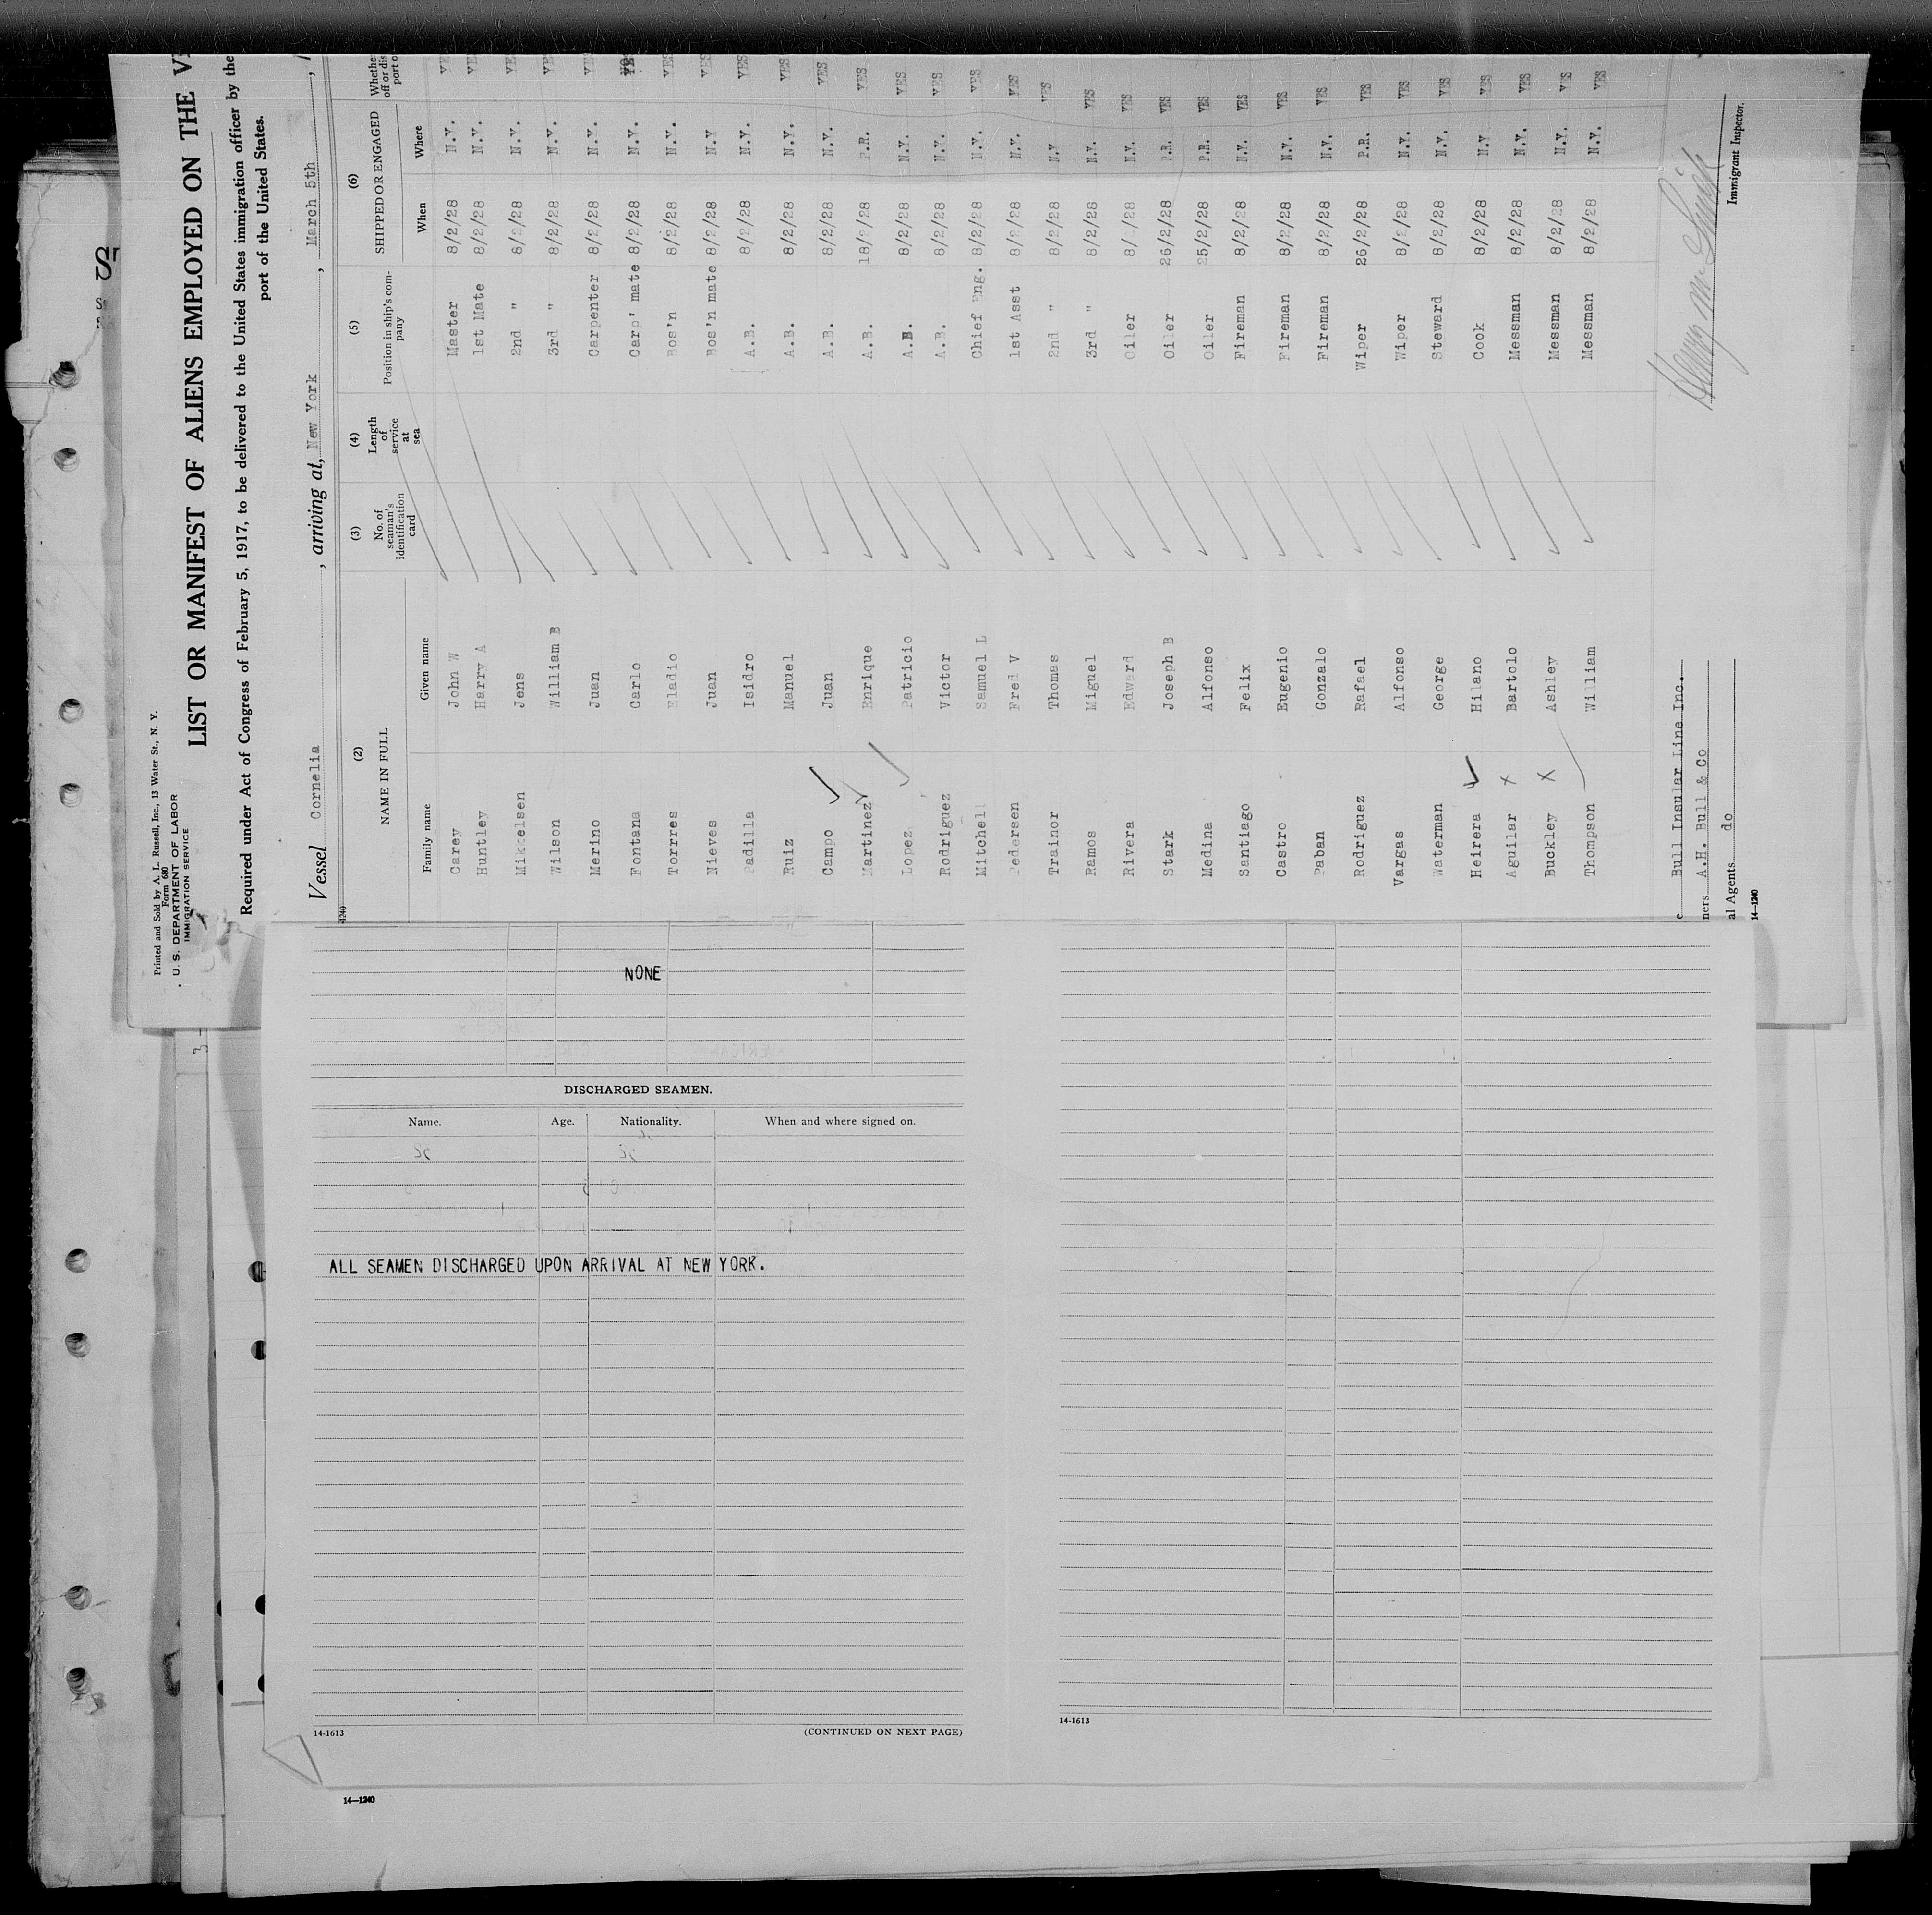 Printed and Sold by A. L. Russell, Inc., 13 Water St., N. Y.
Form 680
U. S. DEPARTMENT OF LABOR
IMMIGRATION SERVICE
LIST OR MANIFEST OF ALIENS EMPLOYED ON THE
Required under Act of Congress of February 5, 1917, to be delivered to the United States immigration officer by the
port of the United States.
Vessel Cornelia, arriving at, New York, March 5th,
(2) (3) (4) (5) (6)
NAME IN FULL No. of seaman's identification card Length of service at sea Position in ship's company SHIPPED OR ENGAGED
Family name Given name When Where
Carey John W Master 8/2/28 N.Y.
Huntley Harry A 1st Mate 8/2/28 N.Y.
Mikkelsen Jens 2nd " 8/2/28 N.Y.
Wilson William B 3rd " 8/2/28 N.Y.
Merino Juan Carpenter 8/2/28 N.Y.
Fontana Carlo Carp' mate 8/2/28 N.Y.
Torrres Eladio Bos'n 8/2/28 N.Y. YES
Nieves Juan Bos'n mate 8/2/28 N.Y YES
Padilla Isidro A.B. 8/2/28 N.Y. YES
Ruiz Manuel A.B. 8/2/28 N.Y. YES
Campo Juan A.B. 8/2/28 N.Y. YES
Martinez Enrique A.B. 18/2/28 P.R. YES
Lopez Patricio A.B. 8/2/28 N.Y. YES
Rodriguez Victor A.B. 8/2/28 N.Y. YES
Mitchell Samuel L Chief Eng. 8/2/28 N.Y. YES
Pedersen Fred V 1st Asst 8/2/28 N.Y. YES
Trainor Thomas 2nd " 8/2/28 N.Y YES
Ramos Miguel 3rd " 8/2/28 N.Y. YES
Rivera Edward Oiler N.Y. YES
Stark Joseph B Oiler 26/2/28 P.R. YES
Medina Alfonso Oiler 25/2/28 P.R. YES
Santiago Felix Fireman 8/2/28 N.Y. YES
Castro Eugenio Fireman 8/2/28 N.Y. YES
Paban Gonzalo Fireman 8/2/28 N.Y. YES
Rodriguez Rafael Wiper 26/2/28 P.R. YES
Vargas Alfonso Wiper 8/2/28 N.Y. YES
Waterman George Steward 8/2/28 N.Y. YES
Heirera Hilano Cook 8/2/28 N.Y YES
Aguilar Bartolo Messman 8/2/28 N.Y. YES
Buckley Ashley Messman 8/2/28 N.Y. YES
Thompson William Messman 8/2/28 N.Y. YES
Bull Insular Line Inc.
ners A.H. Bull & Co
al Agents do
Immigrant Inspector.
14—1240
NONE
DISCHARGED SEAMEN.
Name. Age. Nationality. When and where signed on.
ALL SEAMEN DISCHARGED UPON ARRIVAL AT NEW YORK.
14-1613 (CONTINUED ON NEXT PAGE)
14-1613
14—1240